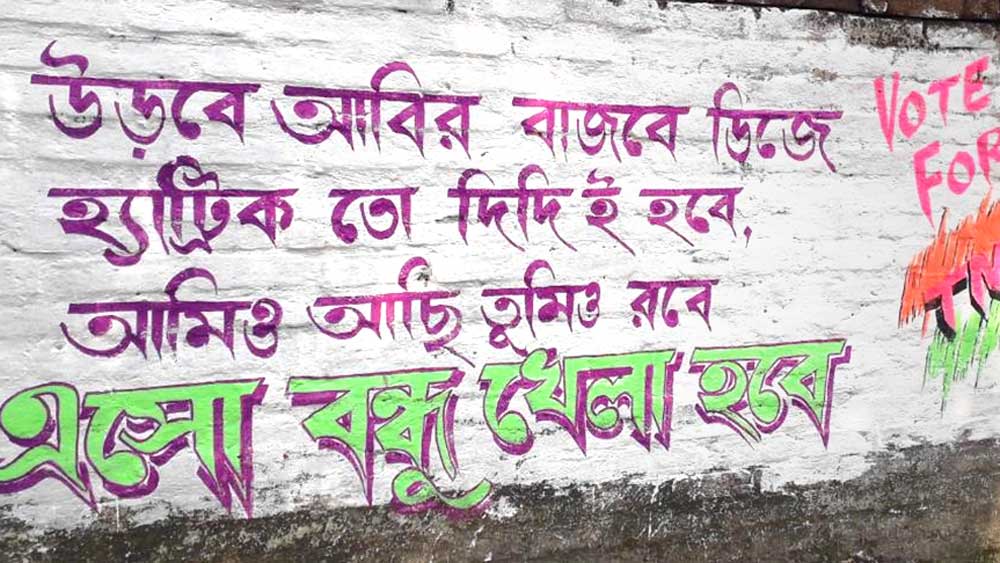 উড়বে আবির বাজবে ডিজে
হ্যাট্রিক তো দিদি ই হবে,
আমিও আছি তুমিও রবে
এসো বন্ধু খেলা হবে
VOTE
FOR